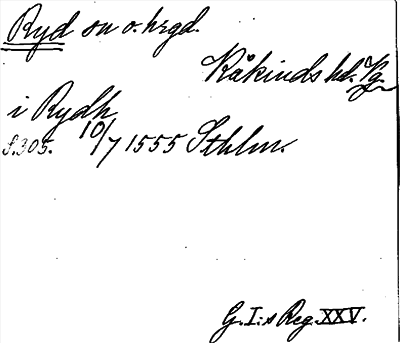 Ryd sn o. hrgd.
Kåkinds hd. Vg
i Rydh
s. 305. 10/7 1555 Sthlm.
G. I:s Reg. XXV.